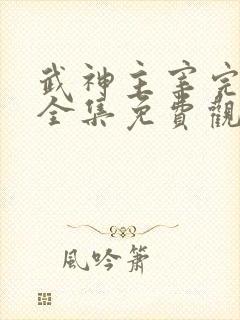 武神主宰完
全集免費觀
風吟簫